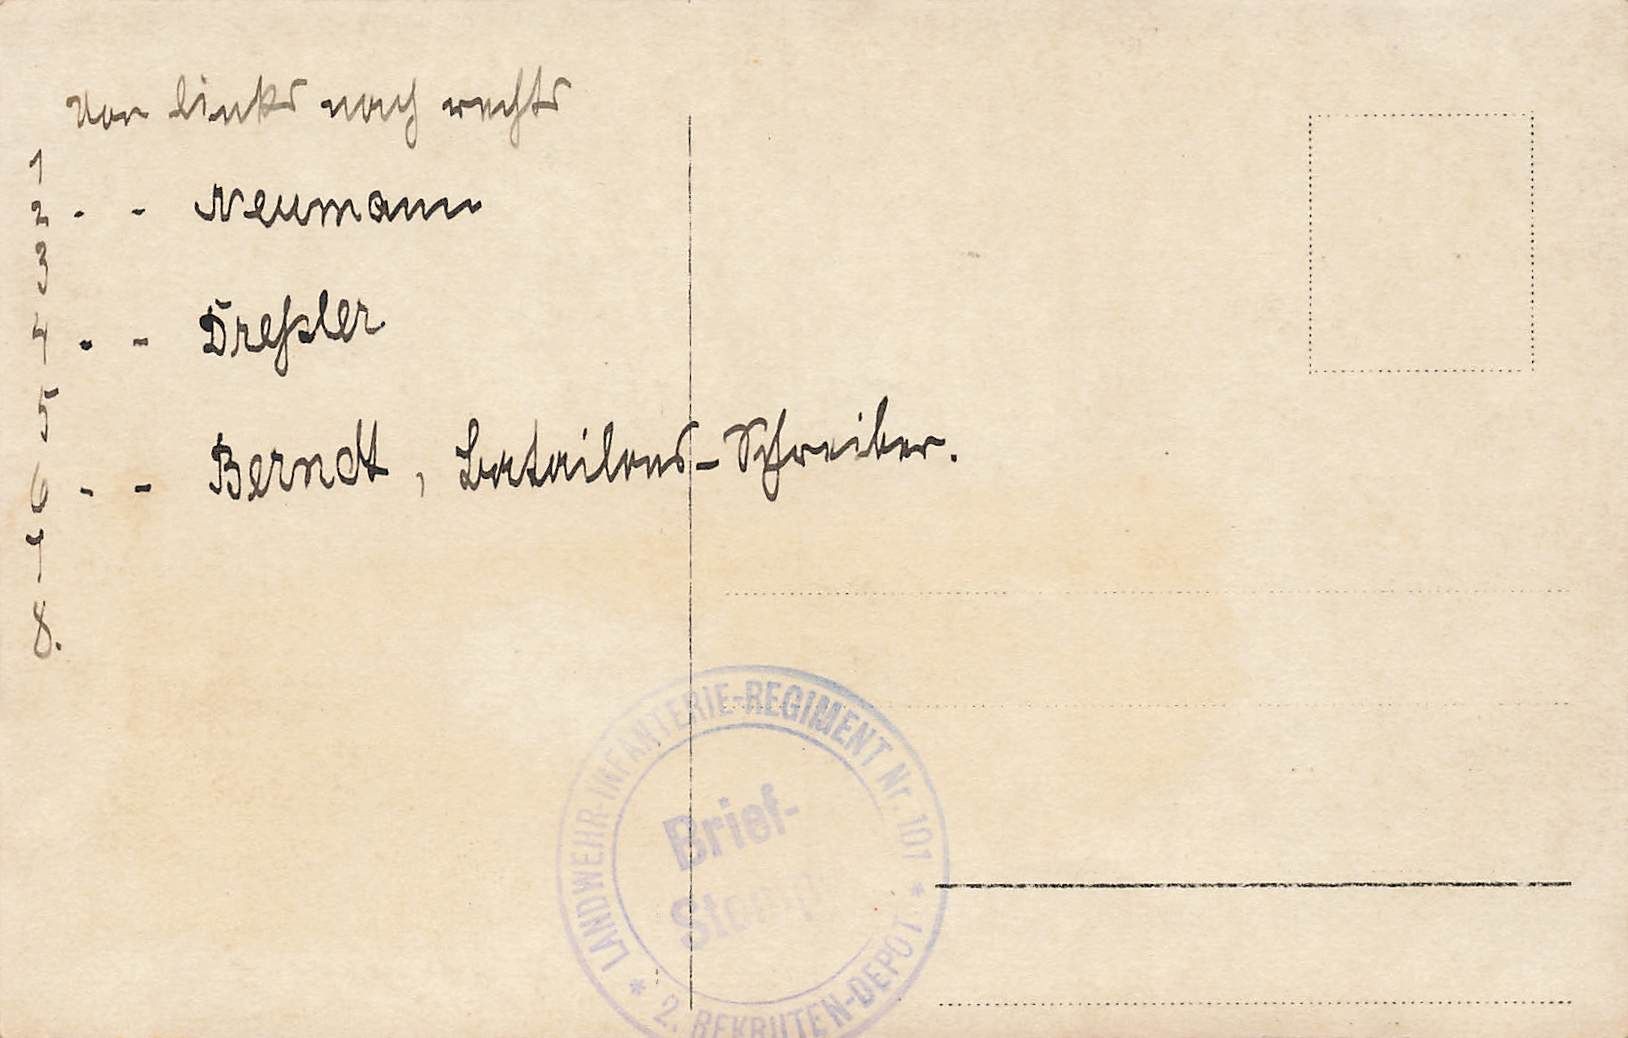 Von links nach rechts
1
2 - - Neumann
3
4 - - Dreßler
5
6 - - Berndt, Batailons-Schreiber.
7
8.
* LANDWEHR-INFANTERIE-REGIMENT Nr. 101 *
Brief-
Stemp
2. REKRUTEN-DEPOT